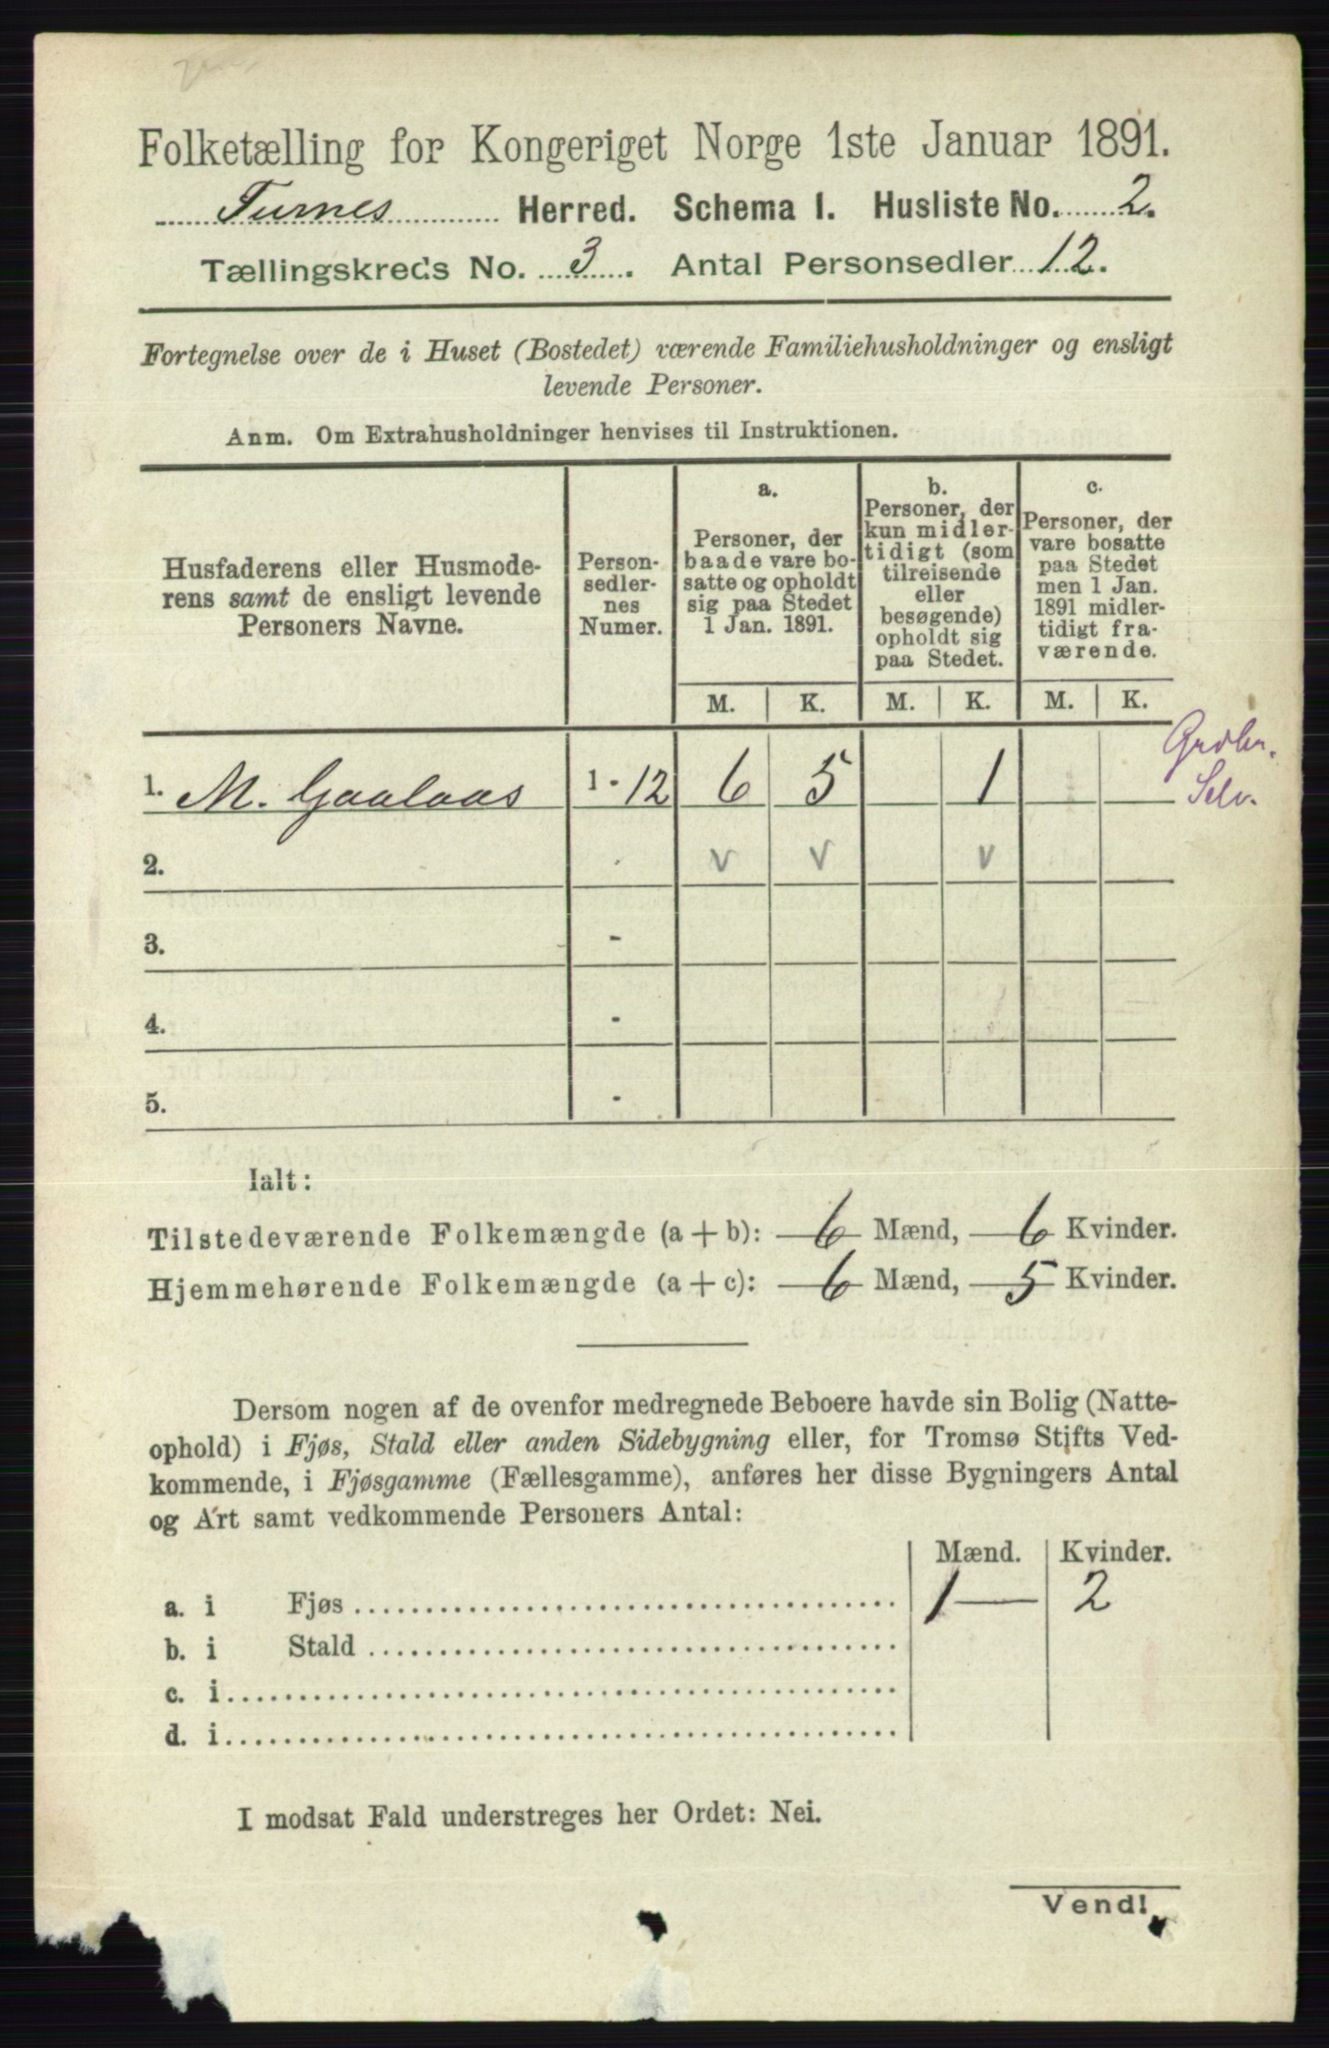 Folketælling for Kongeriget Norge 1ste Januar 1891.
Furnes Herred. Schema I. Husliste No. 2.
Tællingskreds No. 3. Antal Personsedler 12.
Fortegnelse over de i Huset (Bostedet) værende Familiehusholdninger og ensligt
levende Personer.
Anm. Om Extrahusholdninger henvises til Instruktionen.
Husfaderens eller Husmode-
rens samt de ensligt levende
Personers Navne.
Person-
sedler-
nes
Numer.
a.
Personer, der
baade vare bo-
satte og opholdt
sig paa Stedet
1 Jan. 1891.
b.
Personer, der
kun midler-
tidigt (som
tilreisende
eller
besøgende)
opholdt sig
paa Stedet.
c.
Personer, der
vare bosatte
paa Stedet
men 1 Jan.
1891 midler-
tidigt fra-
værende.
M. K. M. K. M. K.
1. M. Gaalaas 1 - 12 6 5 1
Grdbr.
Selv.
2. v v v
3. -
4. -
5. -
Ialt:
Tilstedeværende Folkemængde (a + b): 6 Mænd, 6 Kvinder.
Hjemmehørende Folkemængde (a + c): 6 Mænd, 5 Kvinder.
Dersom nogen af de ovenfor medregnede Beboere havde sin Bolig (Natte-
ophold) i Fjøs, Stald eller anden Sidebygning eller, for Tromsø Stifts Ved-
kommende, i Fjøsgamme (Fællesgamme), anføres her disse Bygningers Antal
og Art samt vedkommende Personers Antal:
Mænd. Kvinder.
a. i Fjøs 1 — 2
b. i Stald
c. i
d. i
I modsat Fald understreges her Ordet: Nei.
Vend!